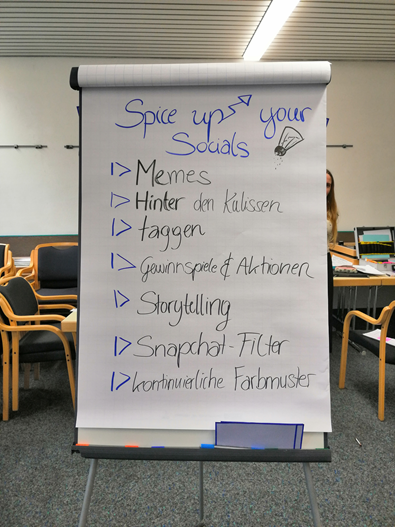 Spice up your
Socials
Memes
Hinter den Kulissen
taggen
Gewinnspiele & Aktionen
Storytelling
Snapchat-Filter
kontinuierliche Farbmuster